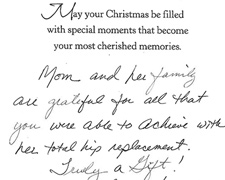 May your Christmas be filled
with special moments that become
your most cherished memories.
Mom and her family
are grateful for all that
you were able to achieve with
her total hip replacement.
Truly a Gift!